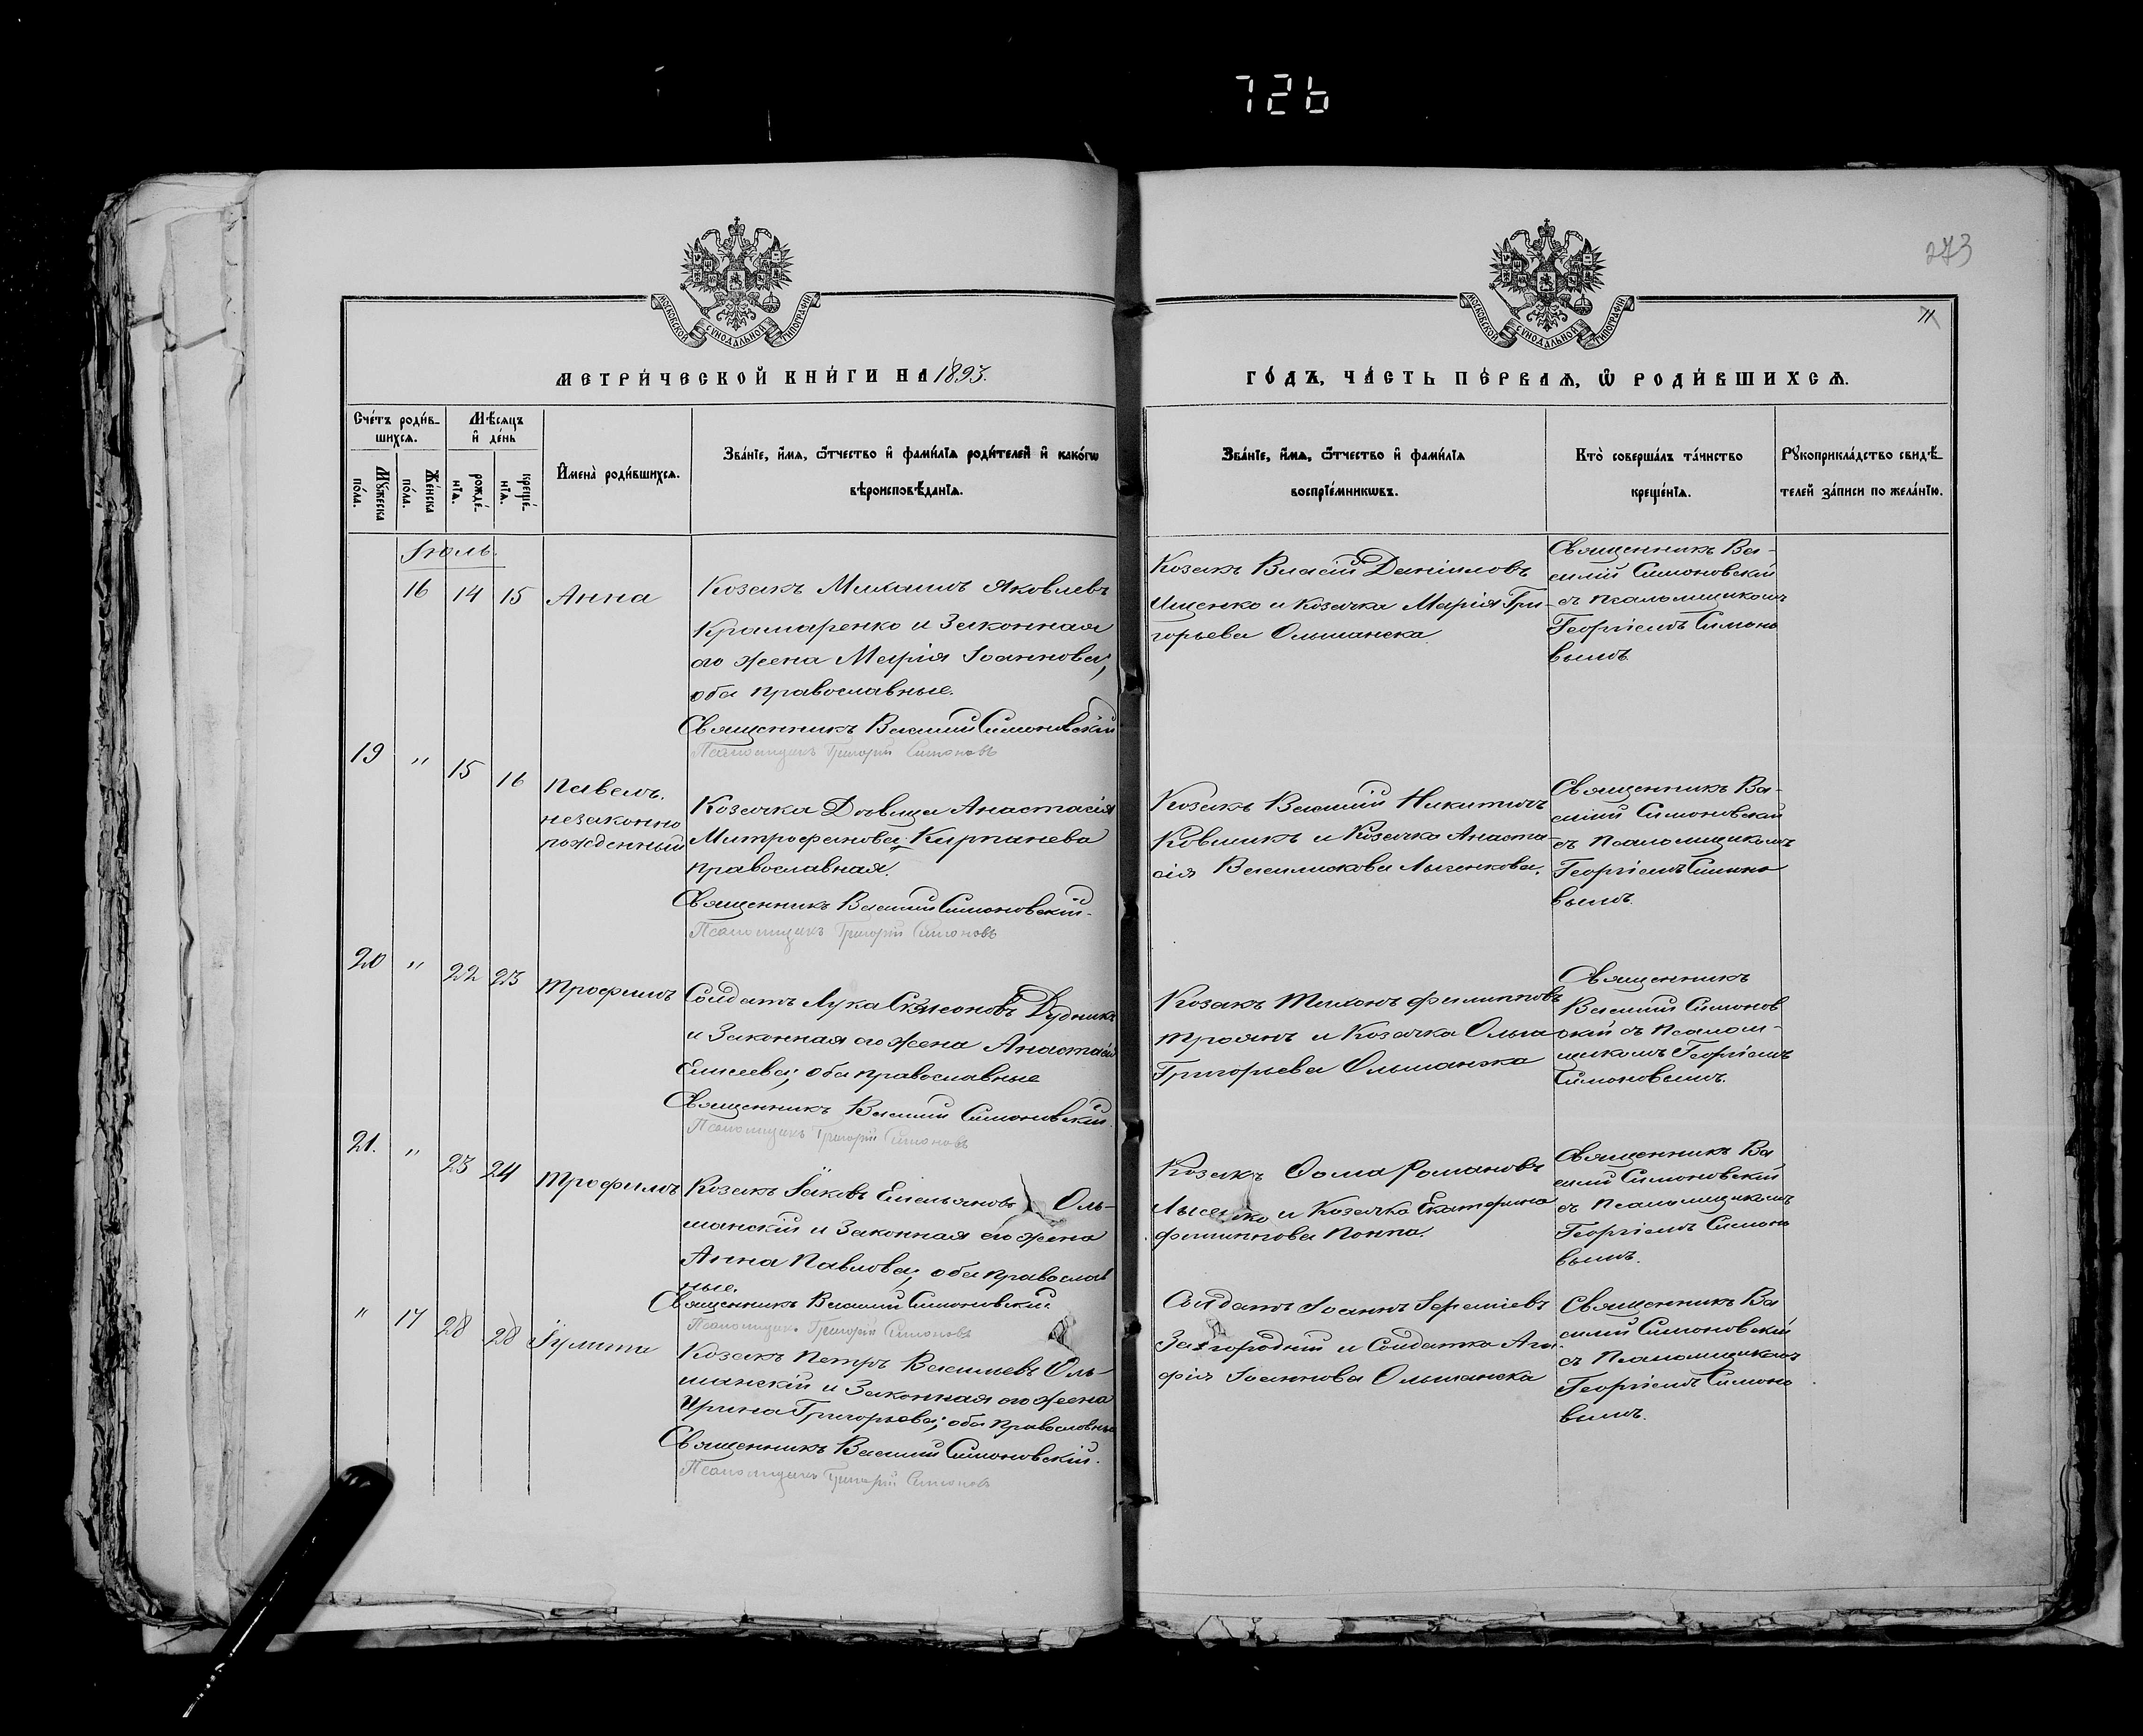 726
273
МОСКОВСКОЙ СѴНОДАЛЬНОЙ ТИПОГРАФІИ
МОСКОВСКОЙ СѴНОДАЛЬНОЙ ТИПОГРАФІИ
11
МЕТРИ́ЧЕСКОЙ КНИ́ГИ НА 1893.
ГО́ДЪ, ЧА́СТЬ ПЕ́РВАѦ, Ѽ РОДИ́ВШИХСѦ.
Сче́тъ роди́в-
шихсѧ.
Мѣ́сѧцъ
и҆ де́нь
Мꙋ́жеска
по́ла.
Же́нска
по́ла.
рожде́-
нїѧ.
креще́-
нїѧ.
И҆мена̀ роди́вшихсѧ.
Зва́нїе, и҆́мѧ, ѻ҆́тчество и҆ фами́лїѧ роди́телей и҆ како́гѡ
вѣроисповѣ́данїѧ.
Зва́нїе, и҆́мѧ, ѻ҆́тчество и҆ фами́лїѧ
воспрїе́мникѡвъ.
Кто̀ соверша́лъ та́инство
креще́нїѧ.
Рꙋкоприкла́дство свидѣ́-
телей за́писи по жела́нїю.
Іюль.
16 14 15 Анна
Козакъ Михаилъ Яковлевъ
Крамаренко и Законная
его жена Марія Іоаннова;
оба православные.
Священникъ Василій Симоновскій
Псаломщикъ Григорій Симоновъ
Козакъ Власій Даніиловъ
Ищенко и Козачка Марія Гри-
горьева Ольшанска
Священникъ Ва-
силій Симоновскій
съ псаломщикомъ
Георгіемъ Симоно
вымъ.
19 " 15 16 Павелъ.
незаконно
рожденный
Козачка Дѣвица Анастасія
Митрофанова Кирпачева
православная.
Священникъ Василій Симоновскій.
Псаломщикъ Григорій Симоновъ
Козакъ Василій Никитинъ
Ковшикъ и Козачка Анаста-
сія
Священникъ Ва-
силій Симоновскій
съ Псаломщикомъ
Георгіемъ Симоно
вымъ.
20 " 22 23 Трофимъ
Солдатъ Лука Симеоновъ Дудникъ
и Законная его жена Анастасія
Елисеева; оба православные
Священникъ Василій Симоновскій.
Псаломщикъ Григорій Симоновъ
Козакъ Тихонъ Филипповъ
Троянъ и Козачка Ольга
Григорьева Ольшанска
Священникъ
Василій Симонов
скій съ Псалом-
щикомъ Георгіемъ
Симоновымъ.
21. " 23 24 Трофимъ
Козакъ Іаковъ Емельяновъ Оль-
шанскій и Законная его жена
Анна Павлова; оба православ
ные.
Священникъ Василій Симоновскій
Псаломщикъ Григорій Симоновъ
Козакъ Ѳома Романовъ
Лысенко и Козачка Екатерина
Филиппова Поппа.
Священникъ Ва
силій Симоновскій
съ Псаломщикомъ
Георгіемъ Симоно
вымъ.
" 17 28 28 Іулита
Козакъ Петръ Василіевъ Оль-
шанскій и Законная его жена
Ирина Григорьева; оба православные
Священникъ Василій Симоновскій.
Псаломщикъ Григорій Симоновъ
Солдатъ Іоаннъ Іереміевъ
Загородній и Солдатка Ага-
фія Іоаннова Ольшанска
Священникъ Ва
силій Симоновскій
съ Псаломщикомъ
Георгіемъ Симоно
вымъ.